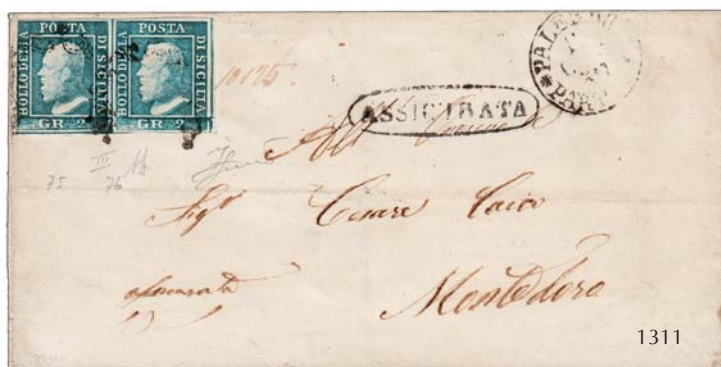 POSTA POSTA
BOLLO DELLA DI SICILIA BOLLO DELLA DI SICILIA
GR 2 GR 2
PALER
PAR
10125.
ASSICURATA
III
75 76
All
Sigr Cesare Caico
assicurata
Montedoro
1311